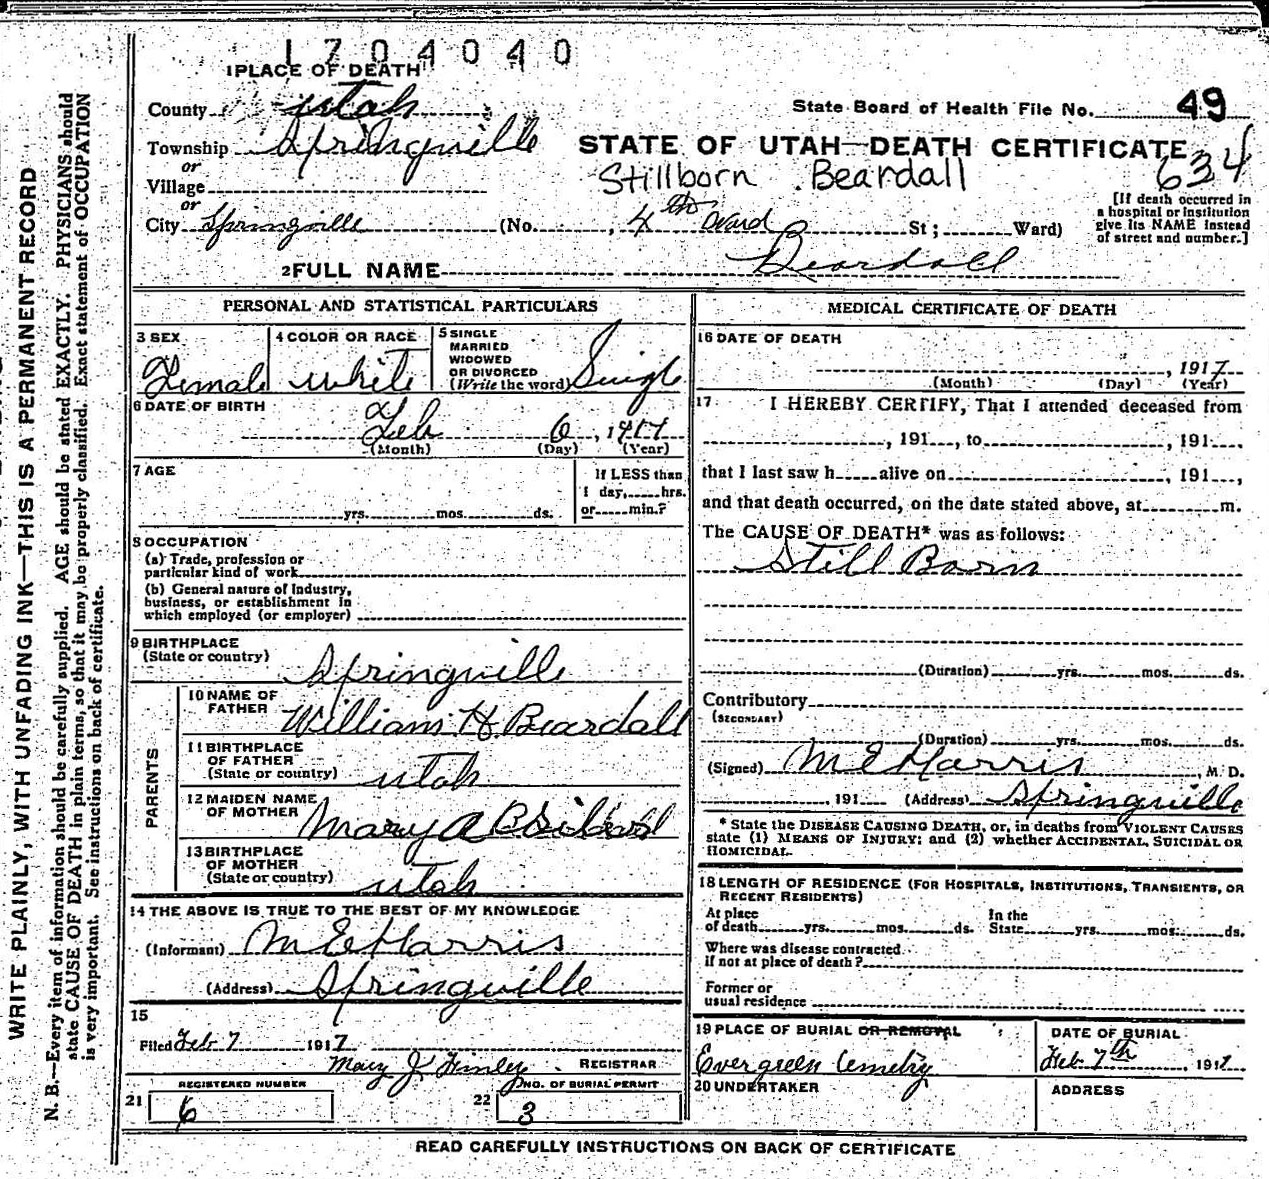 1704040
1 PLACE OF DEATH
County Utah
State Board of Health File No. 49
Township Springville
STATE OF UTAH—DEATH CERTIFICATE
634
or
Village
Stillborn Beardall
or
City Springville (No. , 4th Ward St; Ward)
[If death occurred in
a hospital or institution
give its NAME instead
of street and number.]
2 FULL NAME Beardall
PERSONAL AND STATISTICAL PARTICULARS
3 SEX
Female
4 COLOR OR RACE
White
5 SINGLE
MARRIED
WIDOWED
OR DIVORCED
(Write the word) Single
6 DATE OF BIRTH
Feb 6, 1917
(Month) (Day) (Year)
7 AGE
yrs. mos. ds.
If LESS than
1 day, hrs.
or min.?
8 OCCUPATION
(a) Trade, profession or
particular kind of work
(b) General nature of Industry,
business, or establishment in
which employed (or employer)
9 BIRTHPLACE
(State or country) Springville
PARENTS
10 NAME OF
FATHER William H Beardall
11 BIRTHPLACE
OF FATHER
(State or country) Utah
12 MAIDEN NAME
OF MOTHER Mary A
13 BIRTHPLACE
OF MOTHER
(State or country) Utah
14 THE ABOVE IS TRUE TO THE BEST OF MY KNOWLEDGE
(Informant) M E Harris
(Address) Springville
15
Filed Feb 7 1917
Mary J Finley REGISTRAR
REGISTERED NUMBER
21 6
NO. OF BURIAL PERMIT
22 3
MEDICAL CERTIFICATE OF DEATH
16 DATE OF DEATH
, 1917
(Month) (Day) (Year)
17 I HEREBY CERTIFY, That I attended deceased from
, 191 , to , 191 ,
that I last saw h alive on , 191 ,
and that death occurred, on the date stated above, at m.
The CAUSE OF DEATH* was as follows:
Still Born
(Duration) yrs. mos. ds.
Contributory
(SECONDARY)
(Duration) yrs. mos. ds.
(Signed) M E Harris , M. D.
, 191 (Address) Springville
* State the DISEASE CAUSING DEATH, or, in deaths from VIOLENT CAUSES
state (1) MEANS OF INJURY; and (2) whether ACCIDENTAL, SUICIDAL OR
HOMICIDAL.
18 LENGTH OF RESIDENCE (FOR HOSPITALS, INSTITUTIONS, TRANSIENTS, OR
RECENT RESIDENTS)
At place
of death yrs. mos. ds.
In the
State yrs. mos. ds.
Where was disease contracted
if not at place of death?
Former or
usual residence
19 PLACE OF BURIAL OR REMOVAL
Evergreen Cemetry
DATE OF BURIAL
Feb 7th, 1917
20 UNDERTAKER
ADDRESS
READ CAREFULLY INSTRUCTIONS ON BACK OF CERTIFICATE
WRITE PLAINLY, WITH UNFADING INK—THIS IS A PERMANENT RECORD
N. B.—Every item of information should be carefully supplied. AGE should be stated EXACTLY. PHYSICIANS should
state CAUSE OF DEATH in plain terms, so that it may be properly classified. Exact statement of OCCUPATION
is very important. See instructions on back of certificate.